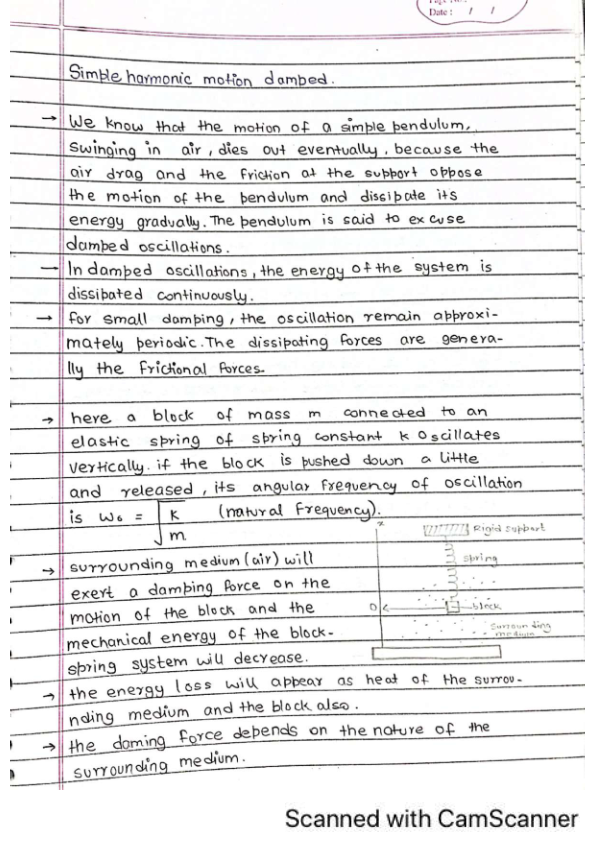 Date : / /
Simple harmonic motion damped.
→ We know that the motion of a simple pendulum,
swinging in air, dies out eventually. because the
air drag and the friction at the support oppose
the motion of the pendulum and dissipate its
energy gradually. The pendulum is said to excuse
damped oscillations.
→ In damped oscillations, the energy of the system is
dissipated continuously.
→ for small damping, the oscillation remain approxi-
mately periodic. The dissipating forces are genera-
lly the frictional forces.
→ here a block of mass m connected to an
elastic spring of spring constant k oscillates
vertically. if the block is pushed down a little
and released, its angular frequency of oscillation
is ω₀ = √k/m (natural frequency).
x
Rigid support
→ surrounding medium (air) will
spring
exert a damping force on the
motion of the block and the
O
block
mechanical energy of the block-
Surrounding
medium
spring system will decrease.
→ the energy loss will appear as heat of the surrou-
nding medium and the block also.
→ the daming force depends on the nature of the
surrounding medium.
Scanned with CamScanner